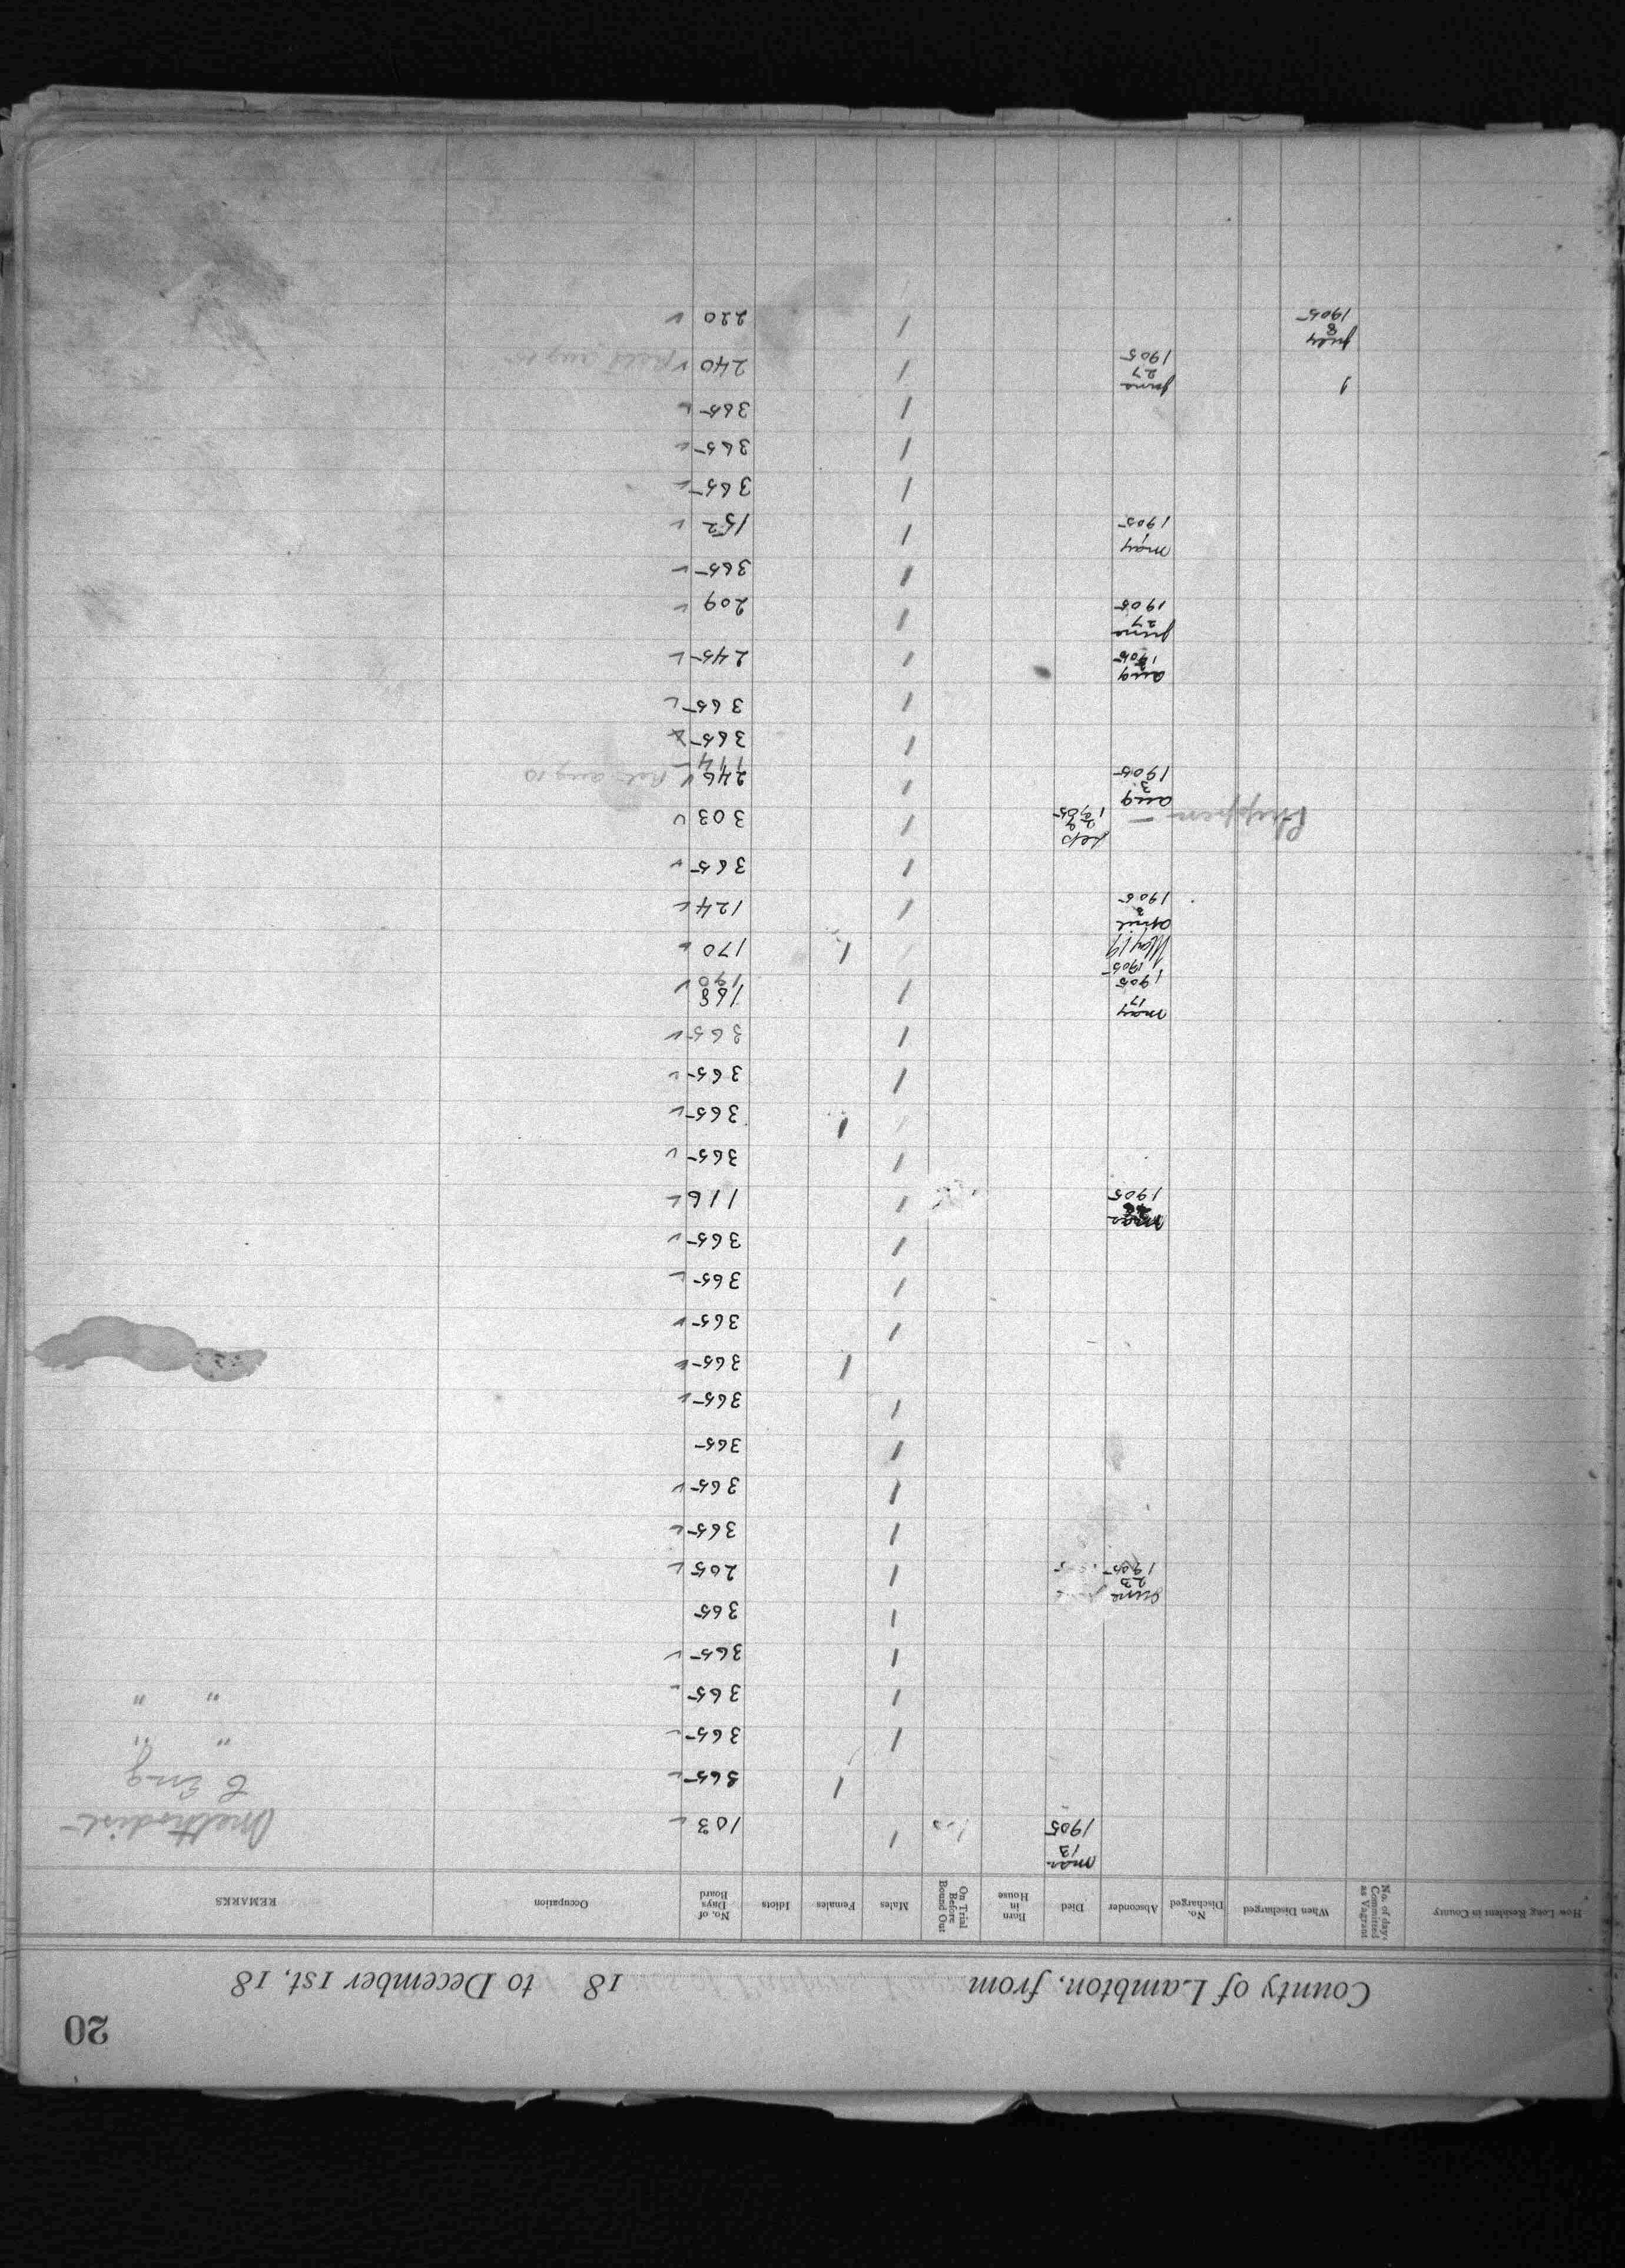 20
County of Lambton, from 18 to December 1st, 18
How Long Resident in County
No. of days Committed as Vagrant
When Discharged
No. Discharged
Absconder
Died
Born in House
On Trial Before Bound Out
Males
Females
Idiots
No. of Days Board
Occupation
REMARKS
Mar 13 1905 1 103 Methodist
1 365 C Eng
1 365 " "
1 365 " "
1 365
1 365
June 23 1905 1 205
1 365
1 365
1 365
1 365
1 365
1 365
1 365
1 365
Mar 1905 1 116
1 365
1 365
1 365
1 365
May 17 1905 1 168
190
May 19 1905 1 170
April 3 1905 1 124
1 365
Sep 29 1905 1 303
Aug 3 1905 1 246 Aug 10
114
1 365
1 365
Aug 1905 1 245
June 27 1905 1 209
1 365
May 1 1905 1 152
1 365
1 365
1 365
1 June 27 1905 1 240 Aug 15
July 8 1905 1 220